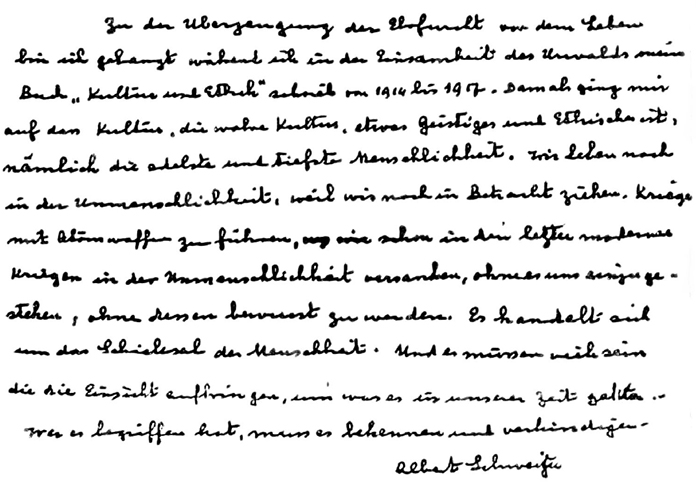 Zu der Überzeugung der Ehrfurcht vor dem Leben
bin ich gelangt während ich in der Einsamkeit des Urwalds mein
Buch „Kultur und Ethik" schrieb von 1914 bis 1917. Damals ging mir
auf dass Kultur, die wahre Kultur, etwas Geistiges und Ethisches ist,
nämlich die edelste und tiefste Menschlichkeit. Wir leben noch
in der Unmenschlichkeit, weil wir noch in Betracht ziehen. Kriege
mit Atomwaffen zu führen, wie schon in den letzten modernen
Kriegen in der Unmenschlichkeit versanken, ohne es uns einzuge-
stehen, ohne dessen bewusst zu werden. Es handelt sich
um das Schicksal der Menschheit. Und es müssen viele sein
die die Einsicht aufbringen, um was es in unserer Zeit
Wer es begriffen hat, muss es bekennen und verkündigen.
Albert Schweitzer